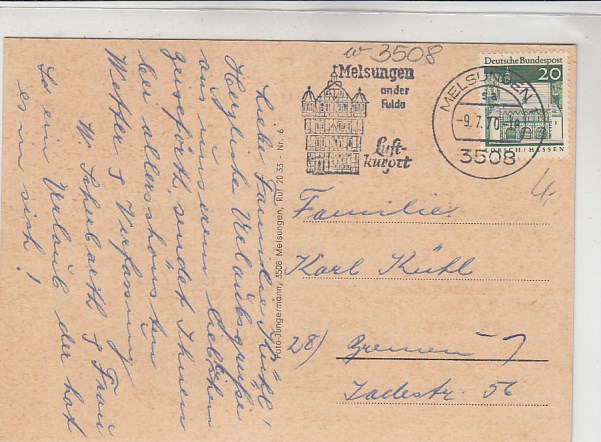 w 3508
Melsungen
an der
Fulda
Luft-
kurort
MELSUNGEN
a
-9.7.70-18
3508
Deutsche Bundespost
20
LORSCH/HESSEN
4,-
Liebe Familie Kühl!
Herzliche Urlaubsgrüße
aus unserem lieblichen
sendet Ihnen
bei allerschönsten
Wetter & Verfassung
W. & Frau
Ja ein Urlaub der hat
es in sich!
Foto-Jungermann, 3508 Melsungen, Ruf 20 33 - Nr. 6
Familie
Karl Kühl
28) Bremen 1
Jadestr. 56